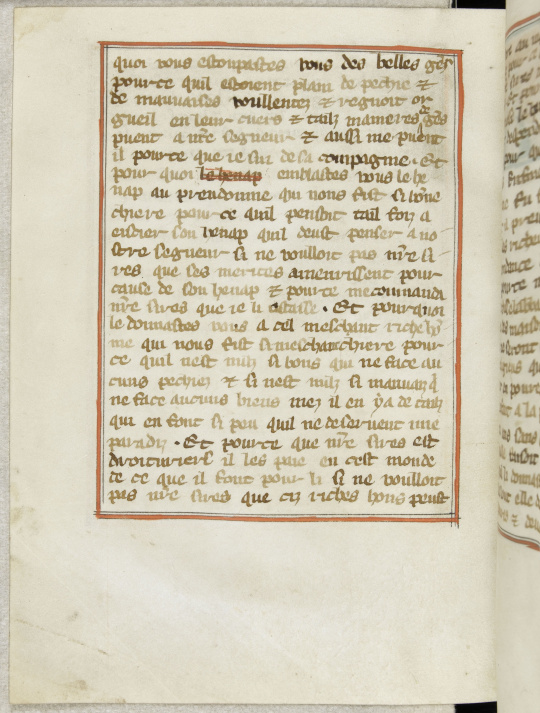 quoi vous estoupastes vous des belles gẽs
pource quil estoient plain de pechie &
de mauvaises voullentez & regnoit or
gueil en leur cuers & tailz manieres de gẽs
puent a nr̃e segneur & aussi me puent
il pource que ie sui de sa compagnie. Et
pour quoi le henap emblastes vous le he
nap au preudomme qui nous fist si bõne
chiere pour ce quil pensoit tail foiz a
essuier son henap quil deust penser a no
stre segneur si ne voulloit pas nr̃e si
res que ses merites amenrissent pour
cause de son henap & pource me commanda
nr̃e sires que ie li ostasse. Et pourquoi
le donnastes vous a cel meschant riche hõ
me qui nous fist si meschant chiere pour
ce quil nest nulz si bons qui ne face au
cuns pechiez & si nest nulz si mauvaiz q̃
ne face aucuns biens mez il en y a de taulz
qui en font si peu quil ne deservent mie
paradiz. Et pource que nr̃e sires est
droituriers il les paie en cest monde
de ce que il font pour li si ne voulloit
pas nr̃e sires que ciz riches hons peust